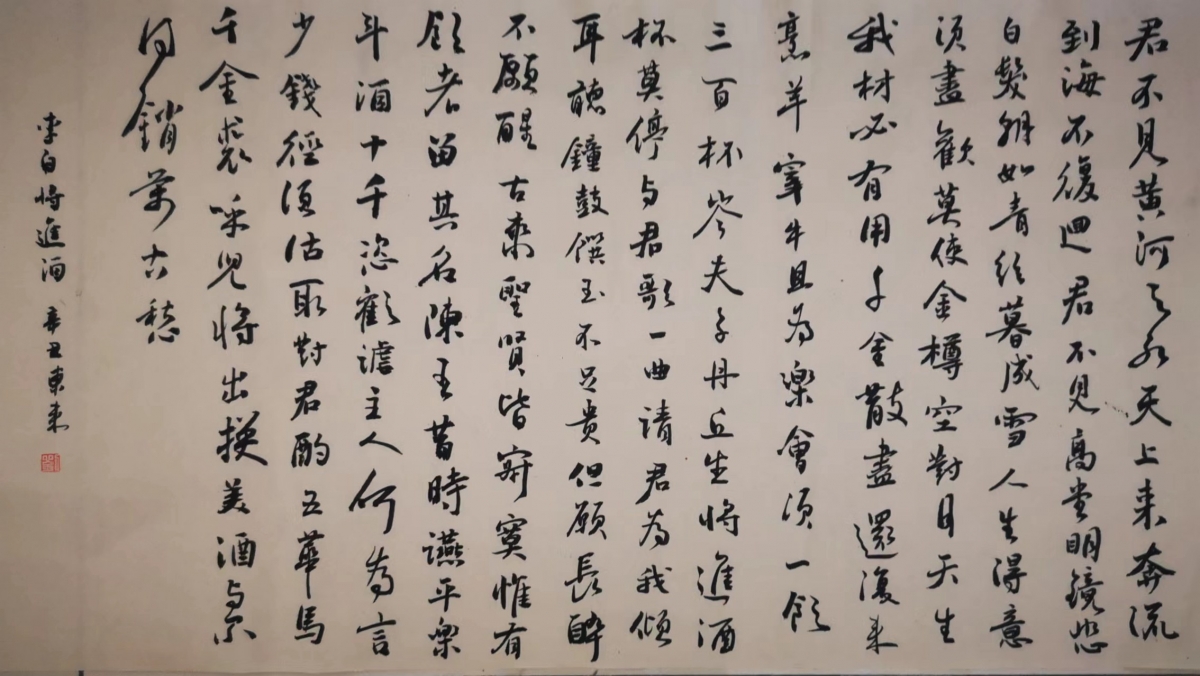 君不见黄河之水天上来奔流
到海不复迴君不见高堂明镜悲
白髮朝如青丝暮成雪人生得意
须盡歡莫使金樽空對月天生
我材必有用千金散盡還復来
烹羊宰牛且为樂會须一饮
三百杯岑夫子丹丘生将進酒
杯莫停与君歌一曲請君为我倾
耳聽鐘鼓饌玉不足贵但願長醉
不願醒古来聖賢皆寂寞惟有
饮者留其名陳王昔時讌平樂
斗酒十千恣歡謔主人何为言
少錢徑须沽取對君酌五華馬
千金裘呼兒将出换美酒与尔
同銷萬古愁
李白将進酒 辛丑東来